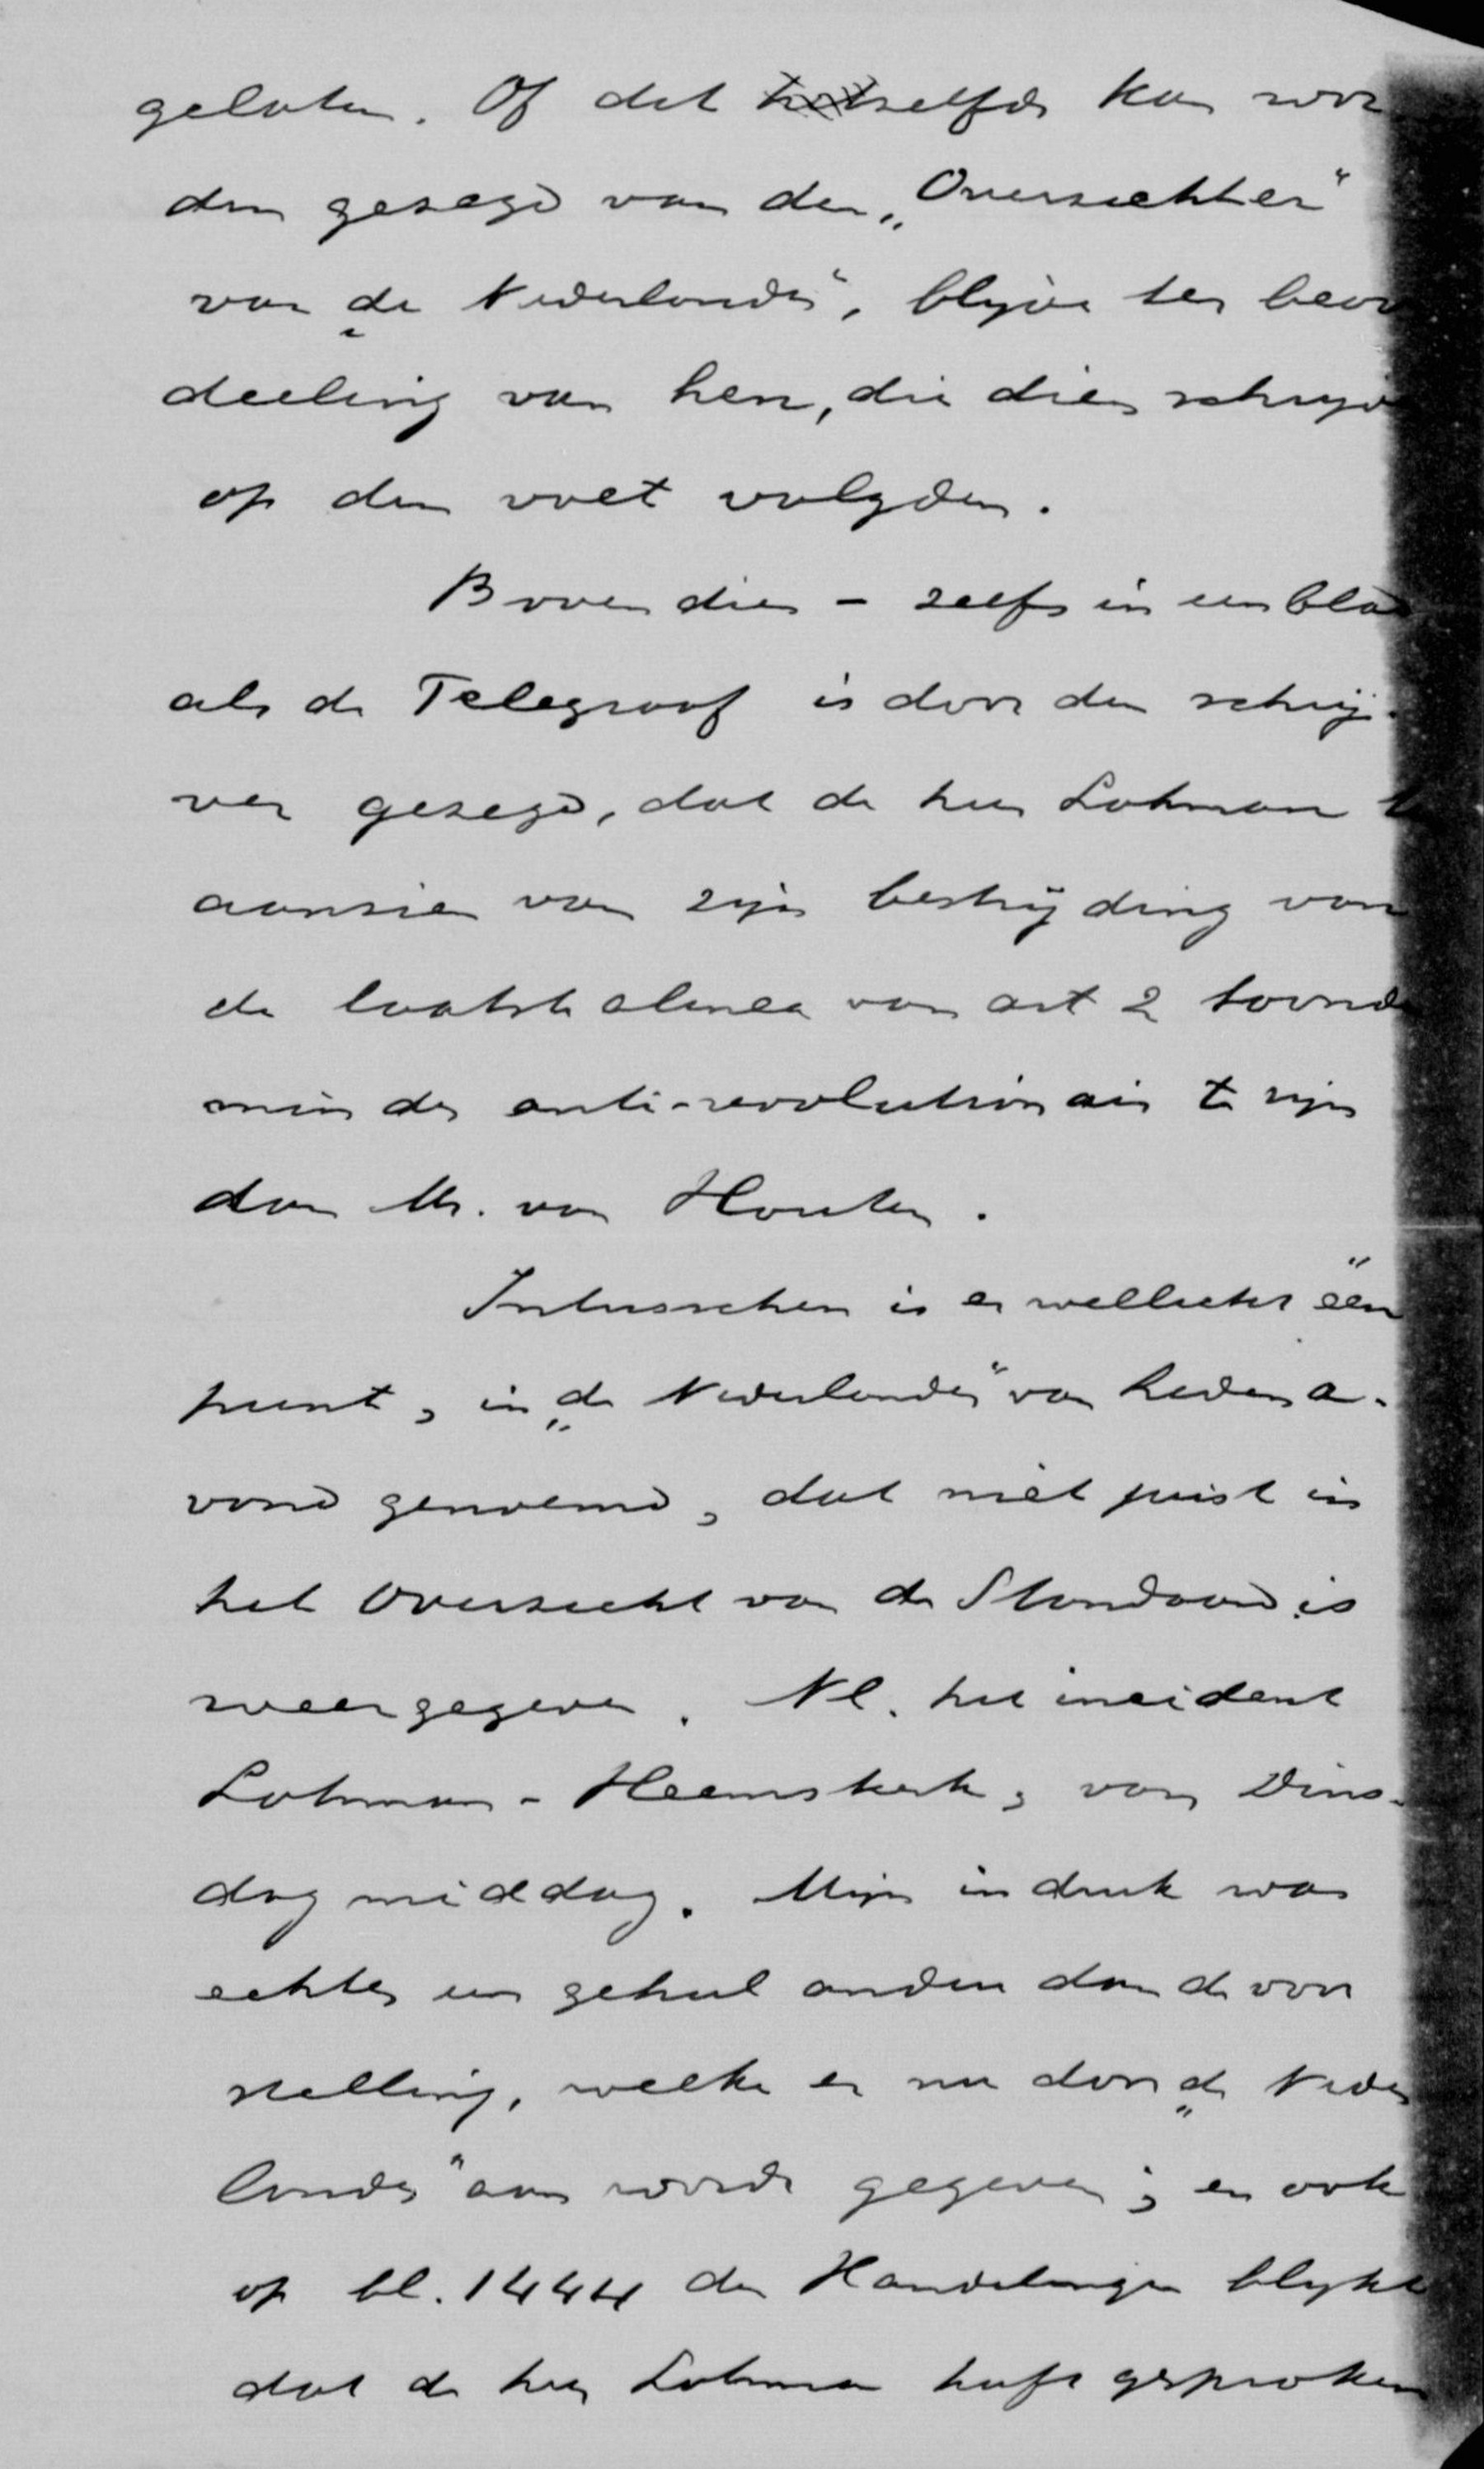 gelaten. Of dat hetzelfde kan wor
den gezegd van den „Overzichter"
van „de Nederlander", blijve ter beoor
deeling van hen, die dien schrijv
op den voet volgden.
Bovendien - zelfs in een blad
als de Telegraaf is door den schrij-
ver gezegd, dat de heer Lohman t
aanzien van zijn bestrijding van
de laatste alinea van art 2 toonde
minder anti-revolutionair te zijn
dan Mr. van Houten.
Intusschen is er wellicht één
punt, in „de Nederlander" van heden a-
vond genoemd, dat niet juist in
het Overzicht van de Standaard is
weergegeven. Nl. het incident
Lohman - Heemskerk, van Dins-
dagmiddag. Mijn indruk was
echter een geheel andere dan de voor
stelling, welke er nu door „de Neder
lander" aan wordt gegeven; en ook
op bl. 1444 der Handelingen blykt
dat de heer Lohman heeft gesproken